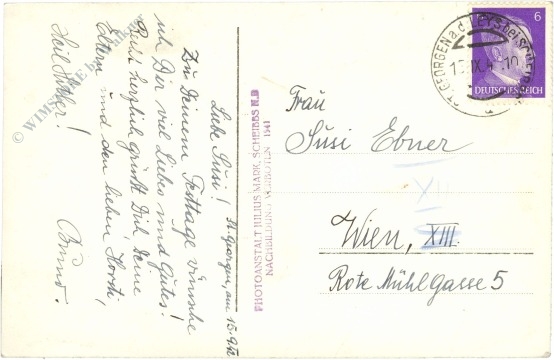 St. Georgen, am 15.9.42
Liebe Susi!
Zu Deinem Festtage wünsche
ich Dir viel Liebes und Gutes!
Recht herzlich grüßt Dich Deine
Eltern und den lieben Horsti,
Heil Hitler!
Bruno.
PHOTOANSTALT HILIUS MARK. SCHEIBBS N.D
NACHBILDUNG VERBOTEN 1941
ST. GEORGEN a.d. LEYS bei SCHEIBBS
6
DEUTSCHES REICH
Frau
Susi Ebner
XIII
Wien, XIII.
Rote Mühlgasse 5